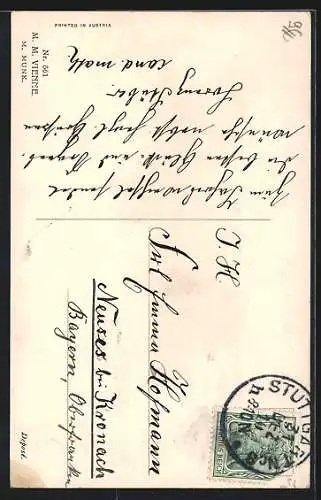 PRINTED IN AUSTRIA
Nr. 561
M. M. VIENNE.
M. MUNK.
Zum Jahreswechsel sendet
die besten Glück- und Segens-
wünsche nebst herzl. Grüßen
cand. math.
T. H.
Frl. Emma Hofmann
Neuses bei Kronach
Bayern, Oberfranken
STUTTGART
31 DEZ
Déposé.